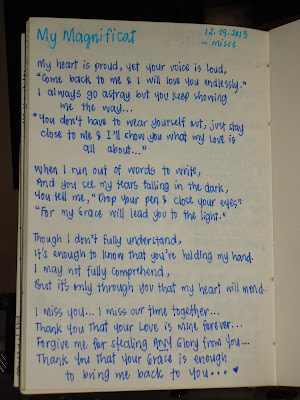 My Magnificat
12.19.2013
My heart is proud, yet your voice is loud,
"Come back to me & I will love you endlessly."
I always go astray but you keep showing
me the way...
"You don't have to wear yourself out, just stay
close to me & I'll show you what my love is
all about..."
When I run out of words to write,
And you see my tears falling in the dark,
You tell me, "Drop your pen & close your eyes"
"For my Grace will lead you to the light."
Though I don't fully understand,
It's enough to know that you're holding my hand.
I may not fully comprehend,
But it's only through you that my heart will mend.
I miss you... I miss our time together...
Thank you that your Love is mine forever...
Forgive me for stealing ANY Glory from You...
Thank You that your Grace is enough
to bring me back to You...